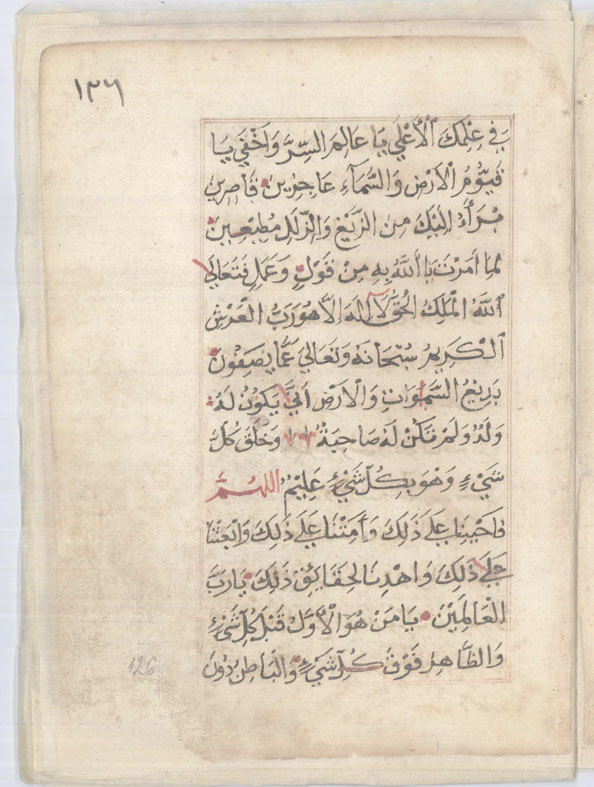 ١٢٦
في عِلْمِكَ الْأَعْلَى يَا عَالِمَ السِّرِّ وَأَخْفَى يَا
قَيُّومُ الْأَرْضِ وَالسَّمَاءِ عَاجِزِينَ قَاصِرِينَ
بُرَآءُ إِلَيْكَ مِنَ الزَّيْغِ وَالزَّلَلِ مُطِيعِينَ
لِمَا أَمَرْتَنَا اللّٰهُ بِهِ مِنْ قَوْلٍ وَعَمَلٍ فَتَعَالَى
اللّٰهُ الْمَلِكُ الْحَقُّ لَا إِلَهَ إِلَّا هُوَ رَبُّ الْعَرْشِ
الْكَرِيمِ سُبْحَانَهُ وَتَعَالَى عَمَّا يَصِفُونَ
بَدِيعُ السَّمٰوَاتِ وَالْأَرْضِ أَنَّى يَكُونُ لَهُ
وَلَدٌ وَلَمْ تَكُنْ لَهُ صَاحِبَةٌ وَخَلَقَ كُلَّ
شَيْءٍ وَهُوَ بِكُلِّ شَيْءٍ عَلِيمٌ اللّٰهُمَّ
فَأَحْيِنَا عَلَى ذَلِكَ وَأَمِتْنَا عَلَى ذَلِكَ وَابْعَثْنَا
عَلَى ذَلِكَ وَاهْدِنَا لِحَقَائِقِ ذَلِكَ يَا رَبَّ
الْعَالَمِينَ يَا مَنْ هُوَ الْأَوَّلُ قَبْلَ كُلِّ شَيْءٍ
وَالظَّاهِرُ فَوْقَ كُلِّ شَيْءٍ وَالْبَاطِنُ دُونَ
126